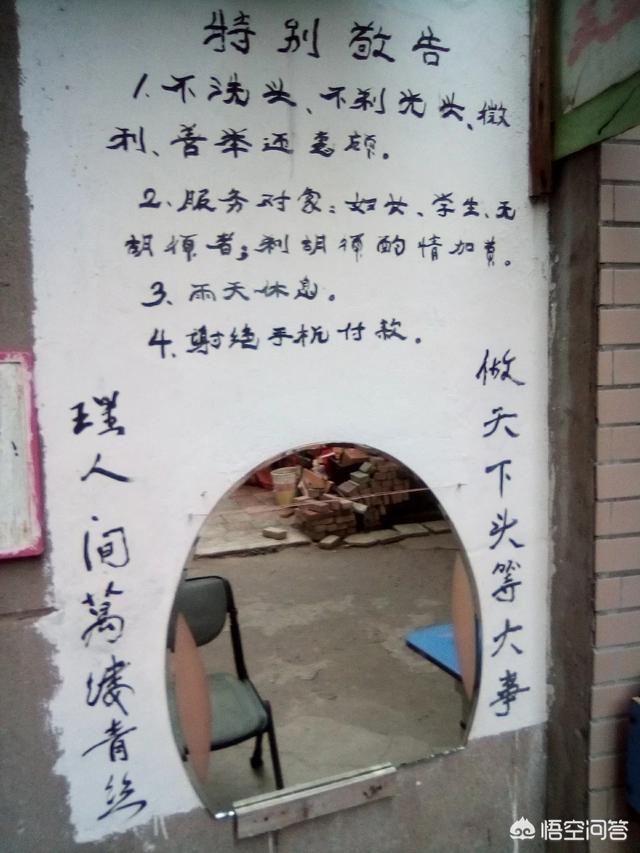 特别敬告
1. 不洗头、不剃光头、微
利、善举还惠顾。
2. 服务对象：妇女、学生、无
胡须者；剃胡须酌情加费。
3、雨天休息。
4、谢绝手机付款。
做天下头等大事
理人间萬缕青丝
悟空问答